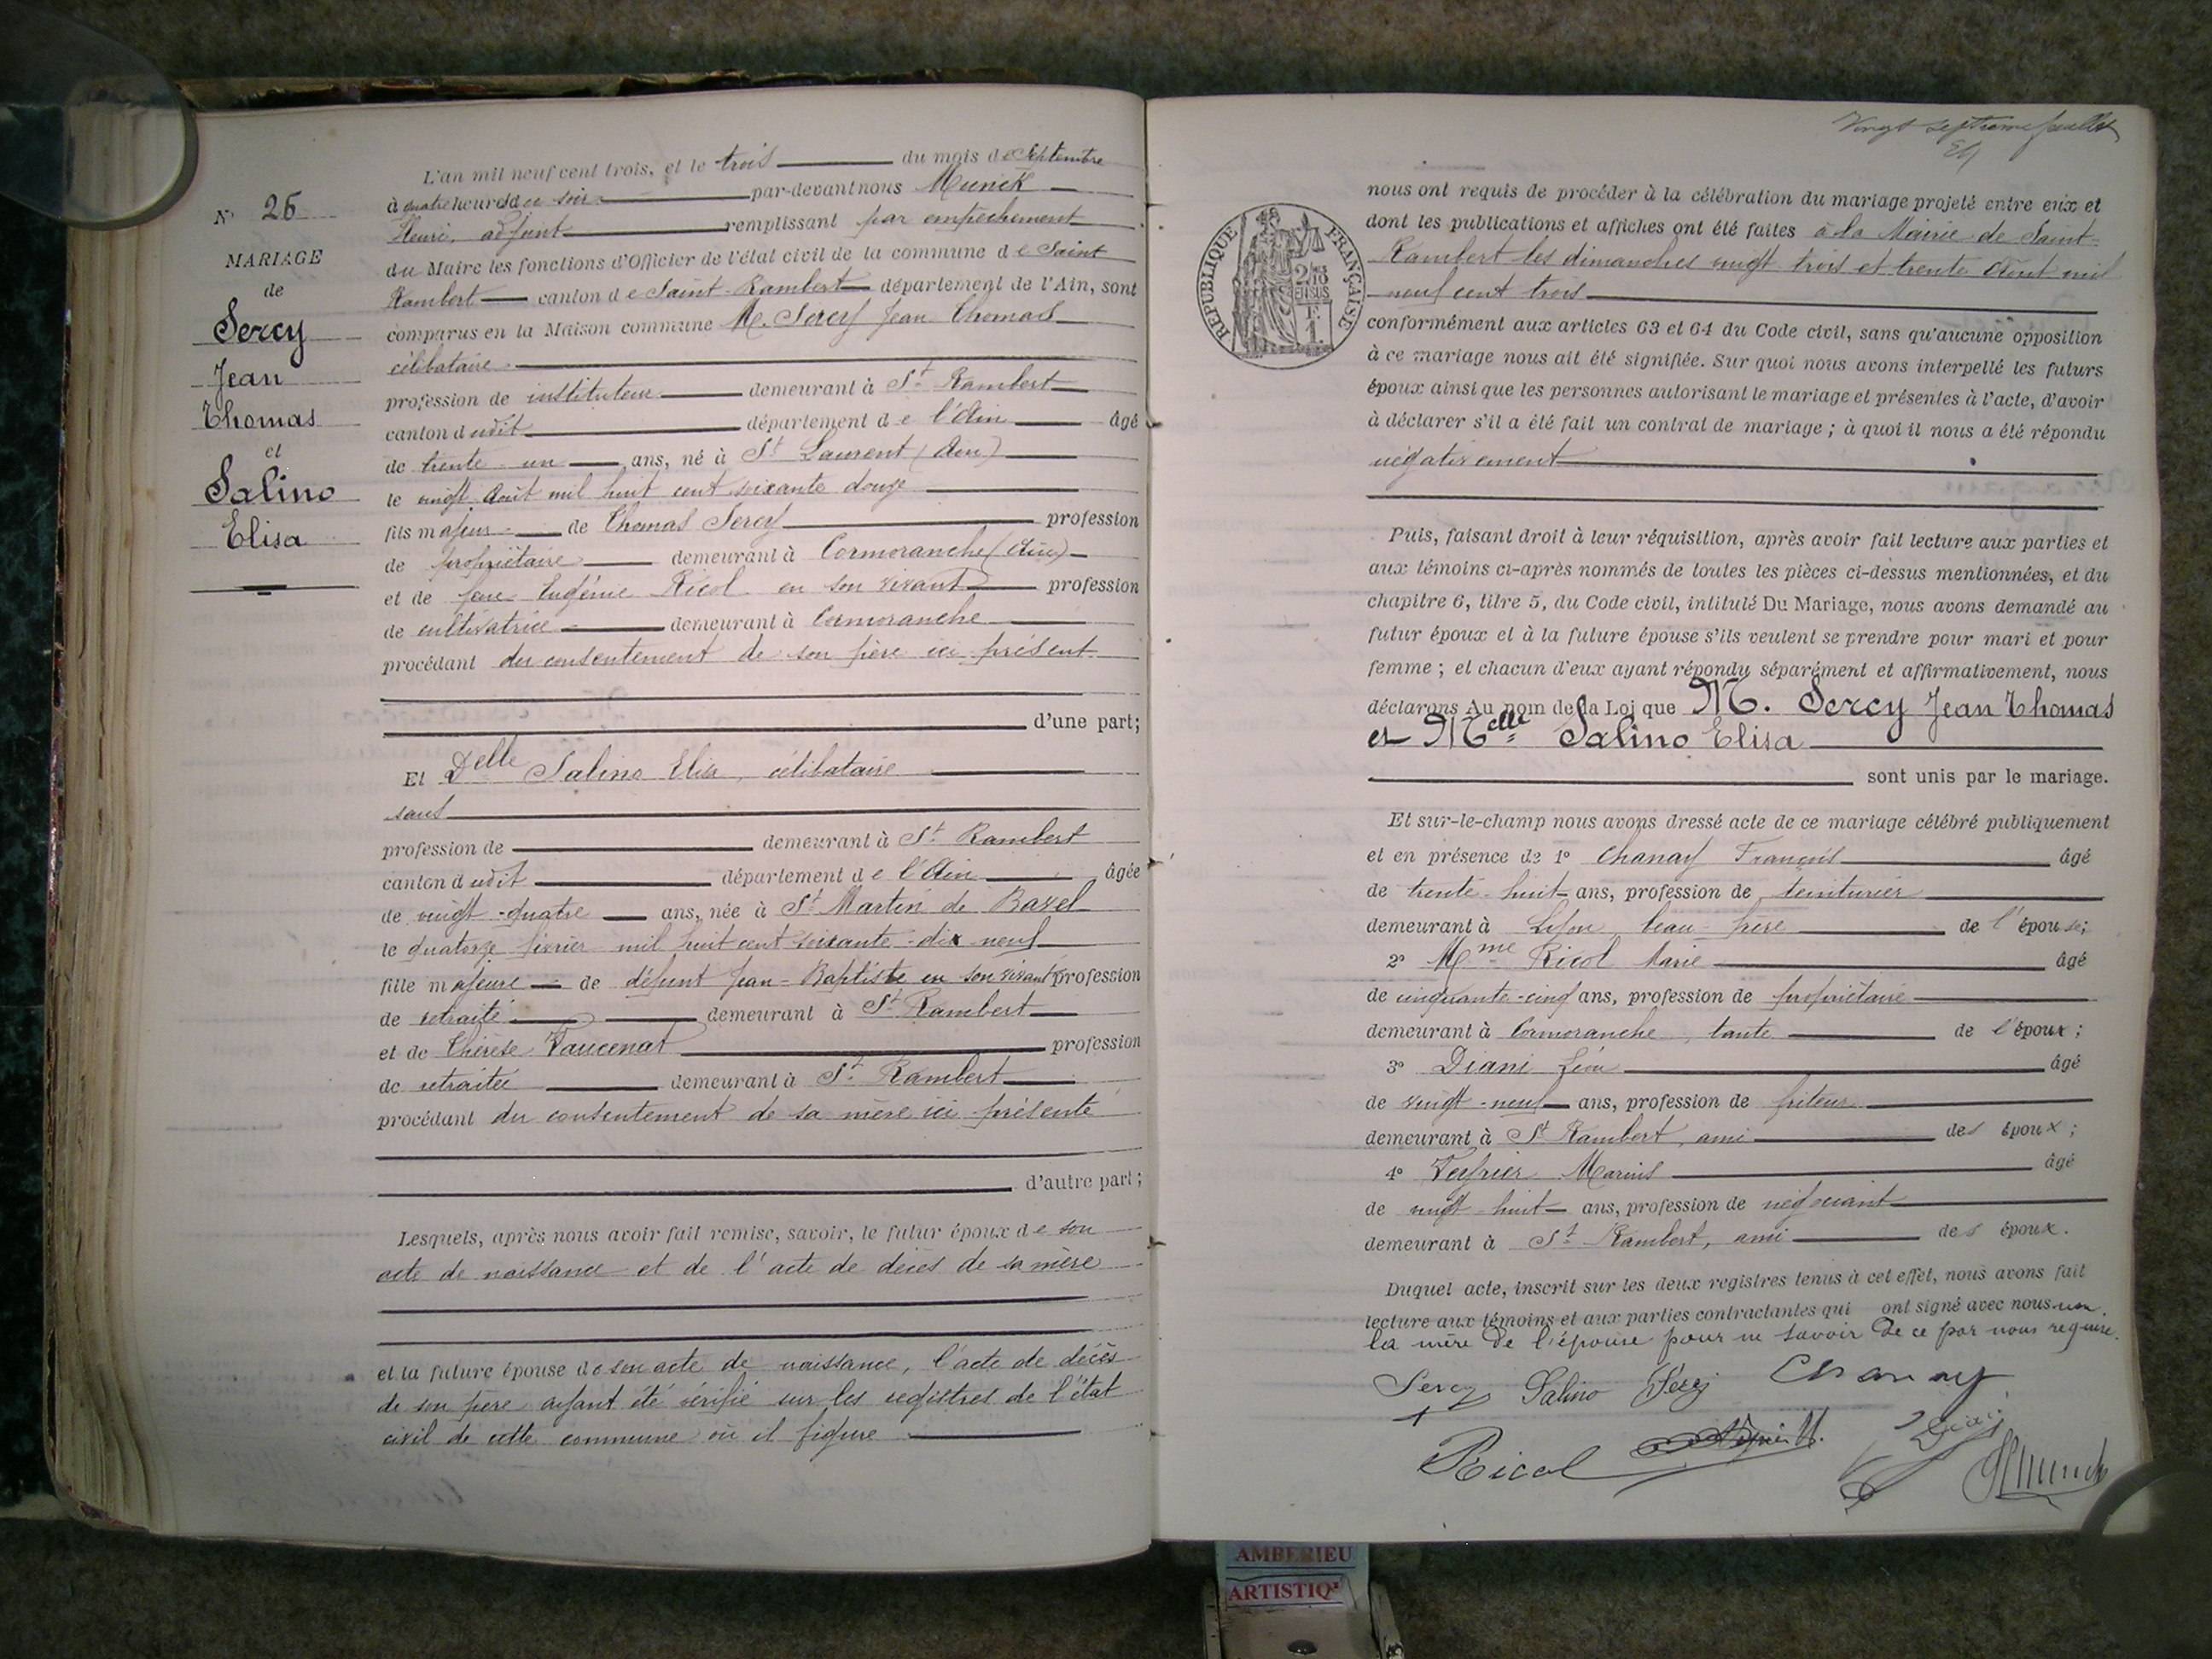 L'an mil neuf cent trois, et le trois du mois de Septembre
à quatre heures du soir par-devant nous Munck
Henri, adjoint remplissant par empêchement
du Maire les fonctions d'Officier de l'état civil de la commune de Saint
Rambert canton de Saint-Rambert département de l'Ain, sont
comparus en la Maison commune M. Sercy Jean Thomas
célibataire
profession de instituteur demeurant à St Rambert
canton dudit département de l'Ain âgé
de trente-un ans, né à St Laurent (Ain)
le vingt août mil huit cent soixante douze
fils majeur de Thomas Sercy profession
de propriétaire demeurant à Cormoranche (Ain)
et de feue Eugénie Ricol en son vivant profession
de cultivatrice demeurant à Cormoranche
procédant du consentement de son père ici présent
d'une part;
Et Delle Salino Elisa, célibataire
sans
profession de demeurant à St Rambert
canton dudit département de l'Ain âgée
de vingt-quatre ans, née à St Martin de Bavel
le quatorze février mil huit cent soixante-dix neuf
fille majeure de défunt Jean-Baptiste en son vivant profession
de retraité demeurant à St Rambert
et de Thérèse Vaucenat profession
de retraitée demeurant à St Rambert
procédant du consentement de sa mère ici présente
d'autre part;
Lesquels, après nous avoir fait remise, savoir, le futur époux de son
acte de naissance et de l'acte de décès de sa mère
et la future épouse de son acte de naissance, l'acte de décès
de son père ayant été vérifié sur les registres de l'état
civil de cette commune où il figure
N° 26
MARIAGE
de
Sercy
Jean
Thomas
et
Salino
Elisa
Vingt septième feuillet
RÉPUBLIQUE FRANÇAISE
2/10
EN SUS
1 F.
nous ont requis de procéder à la célébration du mariage projeté entre eux et
dont les publications et affiches ont été faites à la Mairie de Saint-
Rambert les dimanches vingt trois et trente Août mil
neuf cent trois
conformément aux articles 63 et 64 du Code civil, sans qu'aucune opposition
à ce mariage nous ait été signifiée. Sur quoi nous avons interpellé les futurs
époux ainsi que les personnes autorisant le mariage et présentes à l'acte, d'avoir
à déclarer s'il a été fait un contrat de mariage ; à quoi il nous a été répondu
négativement
Puis, faisant droit à leur réquisition, après avoir fait lecture aux parties et
aux témoins ci-après nommés de toutes les pièces ci-dessus mentionnées, et du
chapitre 6, titre 5, du Code civil, intitulé Du Mariage, nous avons demandé au
futur époux et à la future épouse s'ils veulent se prendre pour mari et pour
femme ; et chacun d'eux ayant répondu séparément et affirmativement, nous
déclarons Au nom de la Loi que M. Sercy Jean Thomas
et Melle Salino Elisa
sont unis par le mariage.
Et sur-le-champ nous avons dressé acte de ce mariage célébré publiquement
et en présence de 1° Chanay François âgé
de trente-huit ans, profession de teinturier
demeurant à Lyon beau-frère de l'épouse;
2° Mme Ricol Marie âgé
de cinquante-cinq ans, profession de propriétaire
demeurant à Cormoranche, tante de l'époux;
3° Diani Léon âgé
de vingt-neuf ans, profession de
demeurant à St Rambert, ami des époux;
4° Marius âgé
de vingt-huit ans, profession de négociant
demeurant à St Rambert, ami des époux.
Duquel acte, inscrit sur les deux registres tenus à cet effet, nous avons fait
lecture aux témoins et aux parties contractantes qui ont signé avec nous non
la mère de l'épouse pour ne savoir de ce par nous requise.
Sercy Salino Sercy Chanay
Ricol Diani HMunck
AMBERIEU
ARTISTIQ